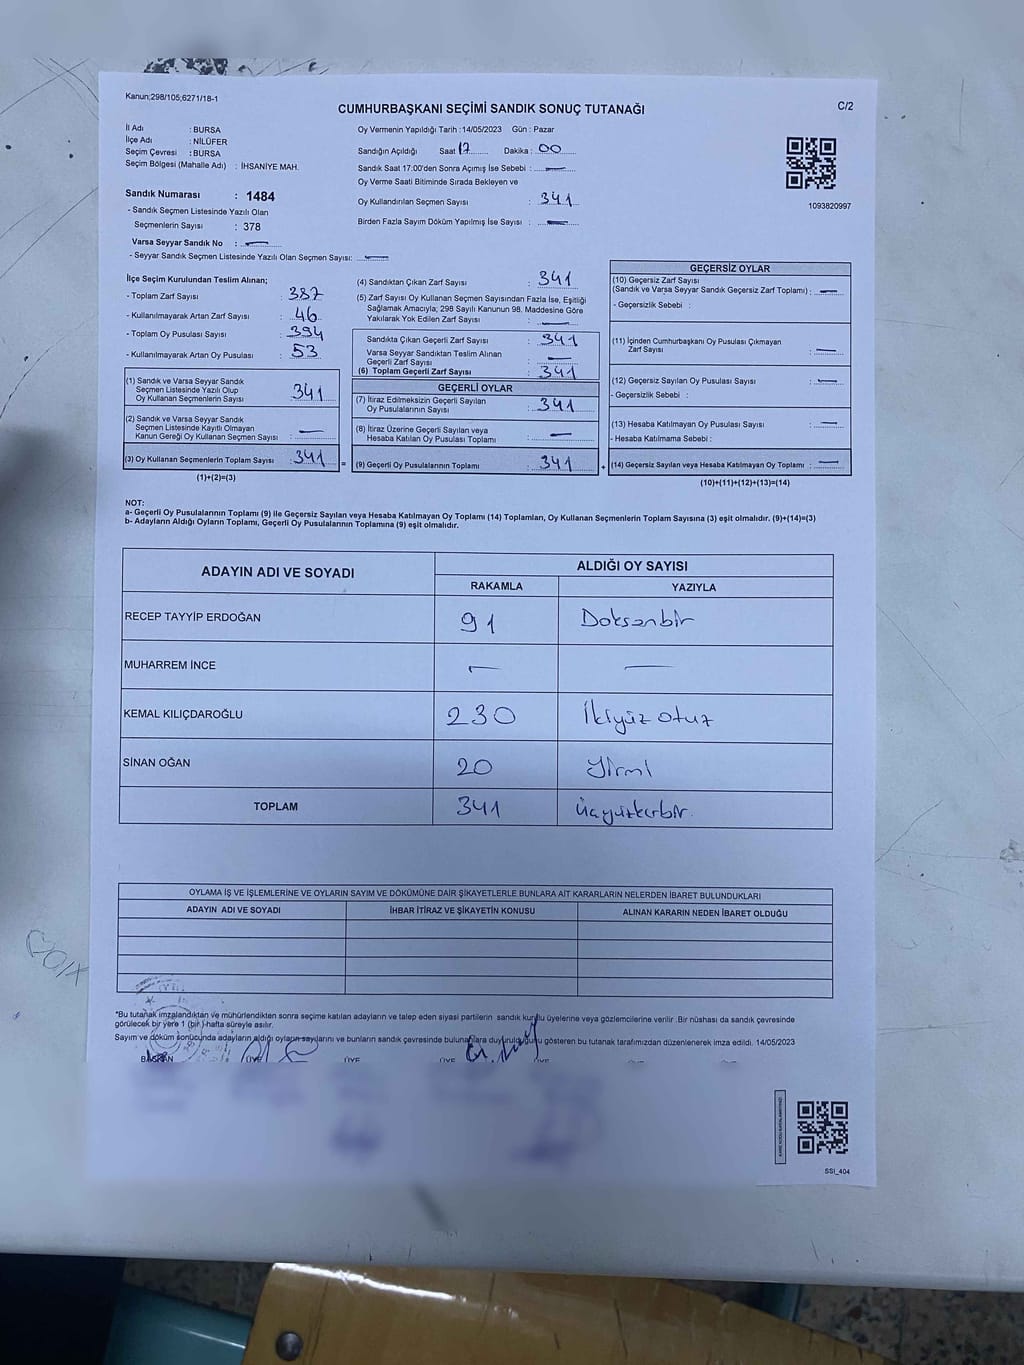 Kanun;298/105;6271/18-1
CUMHURBAŞKANI SEÇİMİ SANDIK SONUÇ TUTANAĞI
C/2
İl Adı : BURSA
İlçe Adı : NİLÜFER
Seçim Çevresi : BURSA
Seçim Bölgesi (Mahalle Adı) : İHSANİYE MAH.
Sandık Numarası : 1484
- Sandık Seçmen Listesinde Yazılı Olan
Seçmenlerin Sayısı : 378
Varsa Seyyar Sandık No :
- Seyyar Sandık Seçmen Listesinde Yazılı Olan Seçmen Sayısı:
Oy Vermenin Yapıldığı Tarih :14/05/2023 Gün : Pazar
Sandığın Açıldığı Saat 17 Dakika : 00
Sandık Saat 17:00'den Sonra Açımış İse Sebebi :
Oy Verme Saati Bitiminde Sırada Bekleyen ve
Oy Kullandırılan Seçmen Sayısı : 341
Birden Fazla Sayım Döküm Yapılmış İse Sayısı :
1093820997
İlçe Seçim Kurulundan Teslim Alınan;
- Toplam Zarf Sayısı : 387
- Kullanılmayarak Artan Zarf Sayısı : 46
- Toplam Oy Pusulası Sayısı : 394
- Kullanılmayarak Artan Oy Pusulası : 53
(1) Sandık ve Varsa Seyyar Sandık
Seçmen Listesinde Yazılı Olup
Oy Kullanan Seçmenlerin Sayısı : 341
(2) Sandık ve Varsa Seyyar Sandık
Seçmen Listesinde Kayıtlı Olmayan
Kanun Gereği Oy Kullanan Seçmen Sayısı :
(3) Oy Kullanan Seçmenlerin Toplam Sayısı : 341
(1)+(2)=(3)
(4) Sandıktan Çıkan Zarf Sayısı : 341
(5) Zarf Sayısı Oy Kullanan Seçmen Sayısından Fazla İse, Eşitliği
Sağlamak Amacıyla; 298 Sayılı Kanunun 98. Maddesine Göre
Yakılarak Yok Edilen Zarf Sayısı :
Sandıkta Çıkan Geçerli Zarf Sayısı : 341
Varsa Seyyar Sandıktan Teslim Alınan
Geçerli Zarf Sayısı :
(6) Toplam Geçerli Zarf Sayısı : 341
GEÇERLİ OYLAR
(7) İtiraz Edilmeksizin Geçerli Sayılan
Oy Pusulalarının Sayısı : 341
(8) İtiraz Üzerine Geçerli Sayılan veya
Hesaba Katılan Oy Pusulası Toplamı :
= (9) Geçerli Oy Pusulalarının Toplamı : 341
GEÇERSİZ OYLAR
(10) Geçersiz Zarf Sayısı
(Sandık ve Varsa Seyyar Sandık Geçersiz Zarf Toplamı) :
- Geçersizlik Sebebi :
(11) İçinden Cumhurbaşkanı Oy Pusulası Çıkmayan
Zarf Sayısı :
(12) Geçersiz Sayılan Oy Pusulası Sayısı :
- Geçersizlik Sebebi :
(13) Hesaba Katılmayan Oy Pusulası Sayısı :
- Hesaba Katılmama Sebebi :
+ (14) Geçersiz Sayılan veya Hesaba Katılmayan Oy Toplamı :
(10)+(11)+(12)+(13)=(14)
NOT:
a- Geçerli Oy Pusulalarının Toplamı (9) ile Geçersiz Sayılan veya Hesaba Katılmayan Oy Toplamı (14) Toplamları, Oy Kullanan Seçmenlerin Toplam Sayısına (3) eşit olmalıdır. (9)+(14)=(3)
b- Adayların Aldığı Oyların Toplamı, Geçerli Oy Pusulalarının Toplamına (9) eşit olmalıdır.
ADAYIN ADI VE SOYADI
ALDIĞI OY SAYISI
RAKAMLA YAZIYLA
RECEP TAYYİP ERDOĞAN 91 Doksanbir
MUHARREM İNCE
KEMAL KILIÇDAROĞLU 230 İkiyüz otuz
SİNAN OĞAN 20 Yirmi
TOPLAM 341 Üçyüzkırbir.
OYLAMA İŞ VE İŞLEMLERİNE VE OYLARIN SAYIM VE DÖKÜMÜNE DAİR ŞİKAYETLERLE BUNLARA AİT KARARLARIN NELERDEN İBARET BULUNDUKLARI
ADAYIN ADI VE SOYADI İHBAR İTİRAZ VE ŞİKAYETİN KONUSU ALINAN KARARIN NEDEN İBARET OLDUĞU
*Bu tutanak imzalandıktan ve mühürlendikten sonra seçime katılan adayların ve talep eden siyasi partilerin sandık kurulu üyelerine veya gözlemcilerine verilir .Bir nüshası da sandık çevresinde
görülecek bir yere 1 (bir ) hafta süreyle asılır.
Sayım ve döküm sonucunda adayların aldığı oyların sayılarını ve bunların sandık çevresinde bulunanlara duyurulduğunu gösteren bu tutanak tarafımızdan düzenlenerek imza edildi. 14/05/2023
BAŞKAN ÜYE ÜYE ÜYE ÜYE
SSİ_404